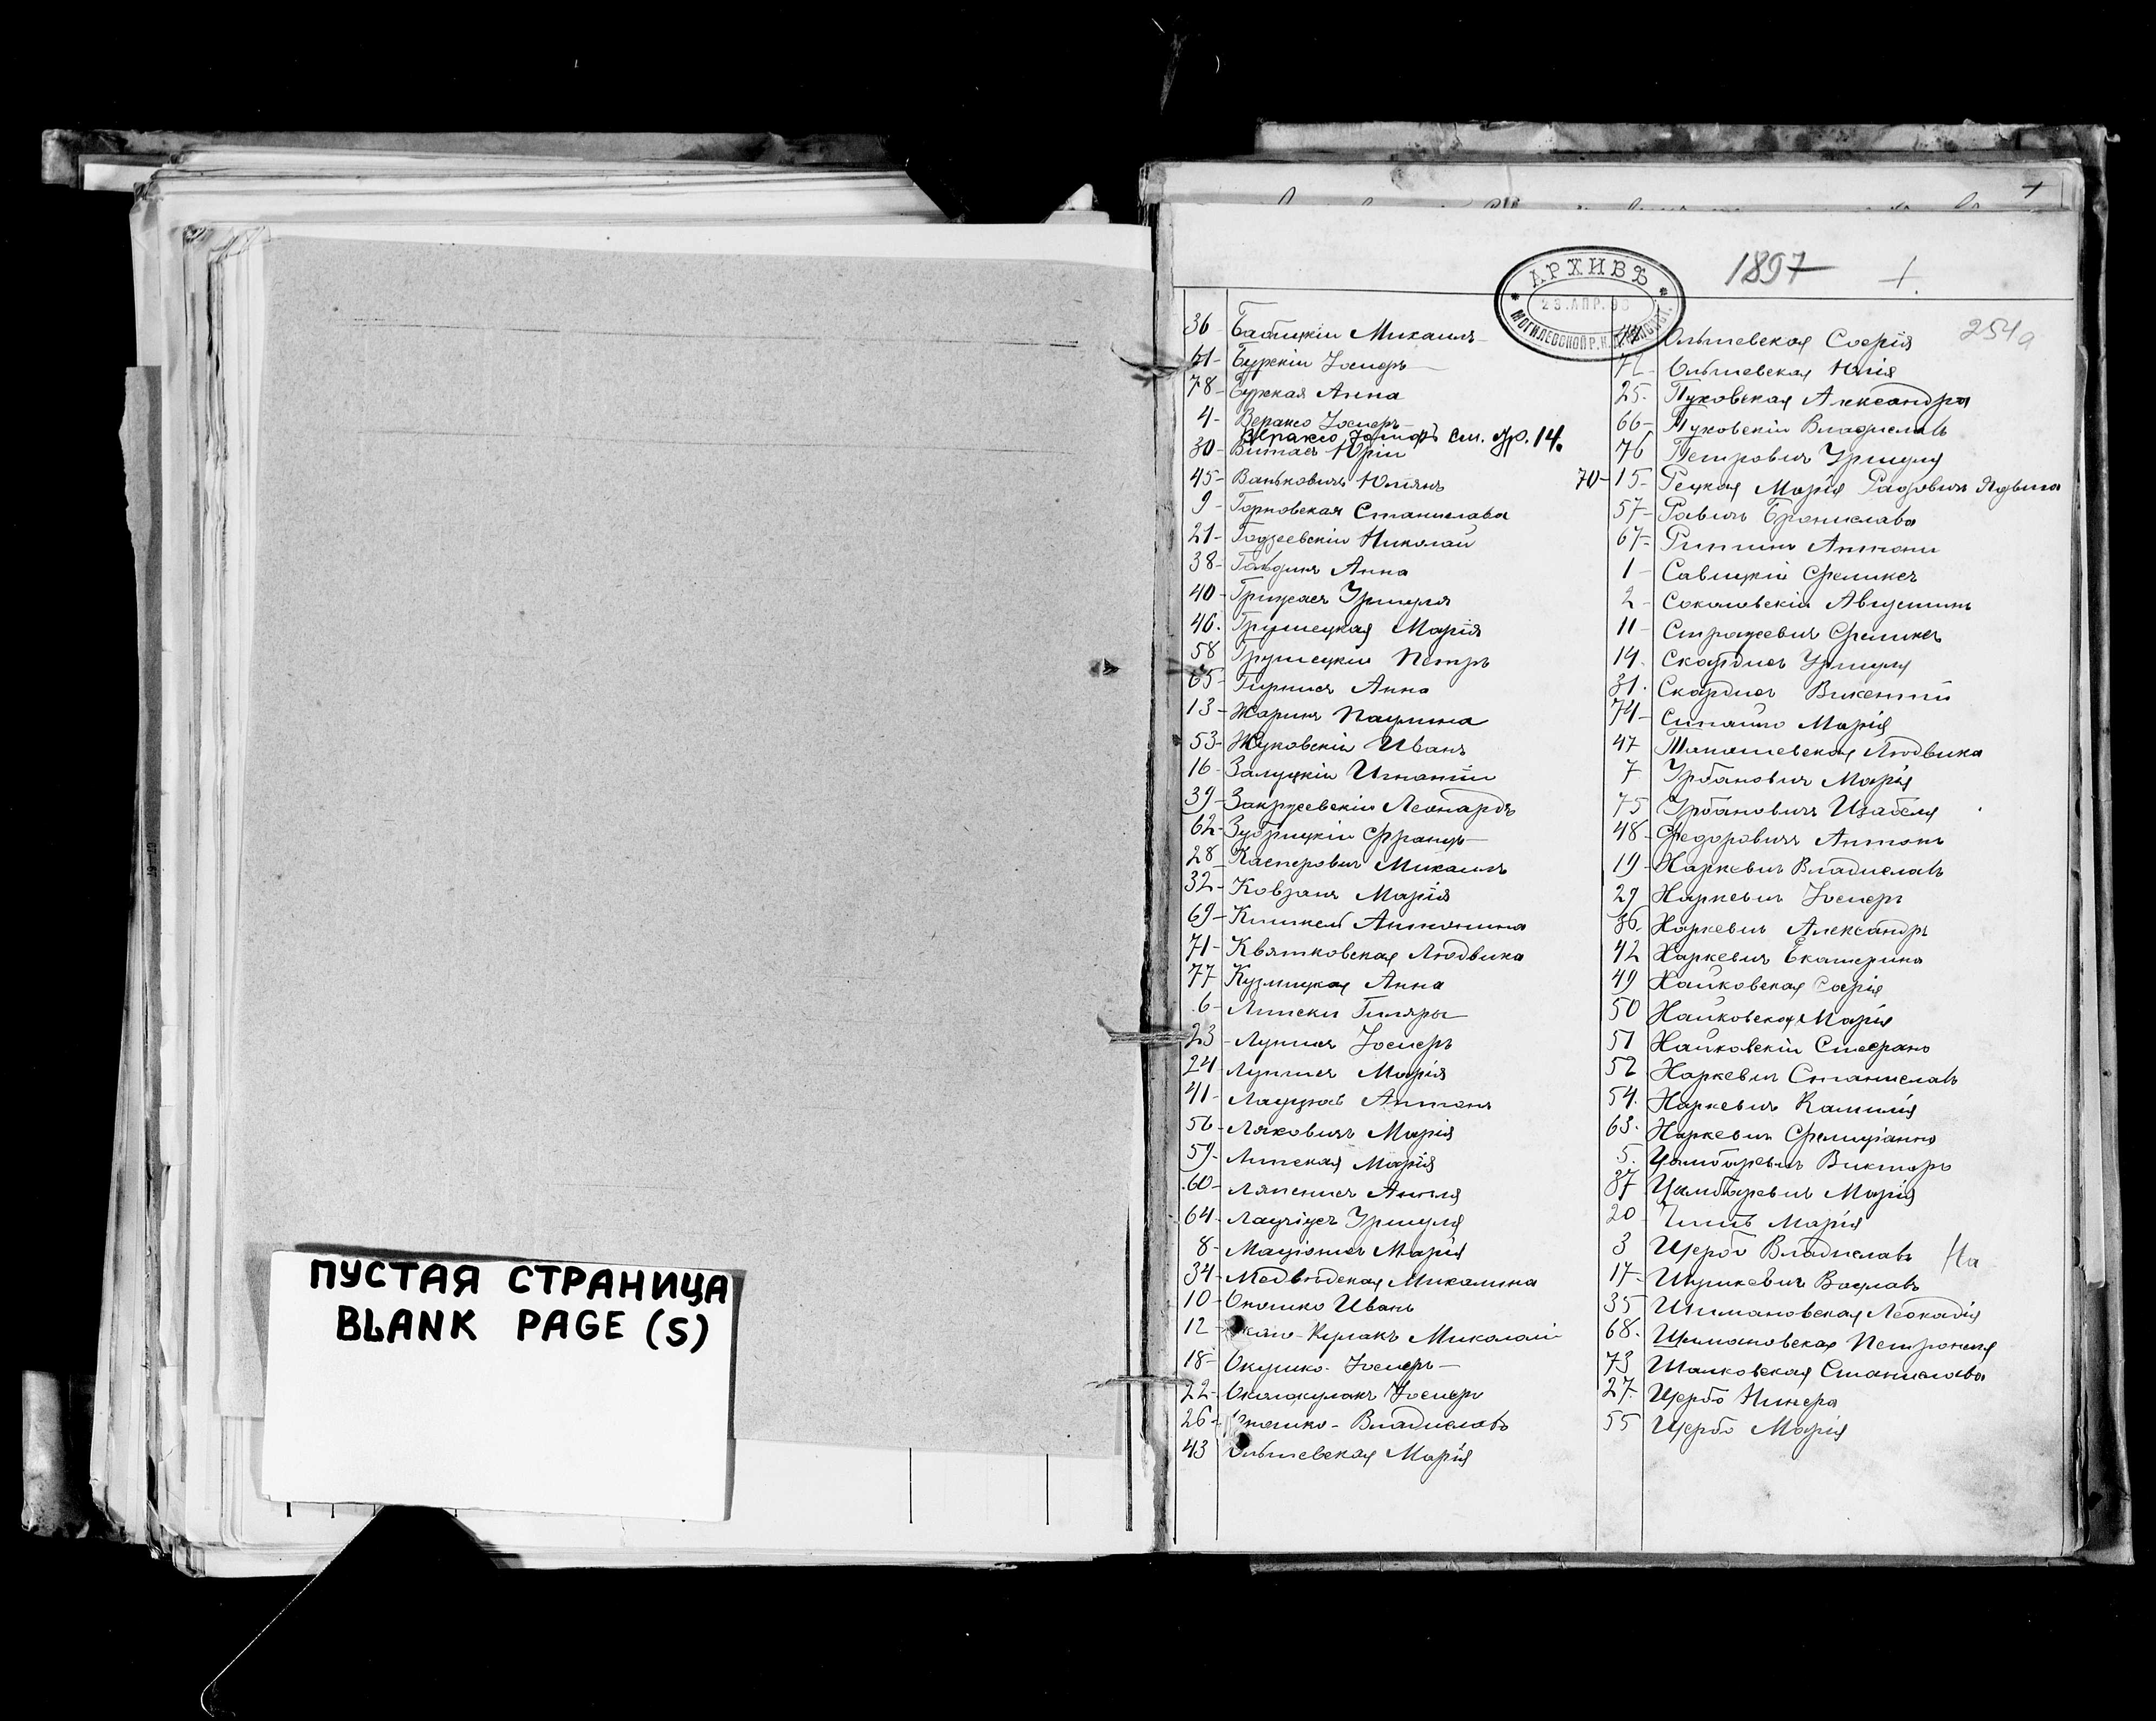 ПУСТАЯ СТРАНИЦА
BLANK PAGE (S)
1897 +
АРХИВЪ
23.АПР.98
МОГИЛЕВСКОЙ Р.К.
254а
36 Бабицкій Михаилъ
61- Бурскій Іосифъ
78- Бурская Анна
4- Вераксо Іосифъ
Вераксо Іосифъ см. стр. 14.
30- Витасъ Юрій
45- Ваньковичъ Юліянъ
9- Горновская Станислава
21- Годзеевскій Николай
38- Гольдинъ Анна
40- Грицасъ Уршуля
46. Грушецкая Марія
58 Грушецкій Петръ
65- Гирнисъ Анна
13- Жаринъ Паулина
53- Жуковскій Иванъ
16- Залуцкій Игнатій
39- Закржевскій Леонардъ
62- Зубрицкій Францъ
28 Касперовичъ Михаилъ
32- Ковзанъ Марія
69- Кишкель Антонина
71- Квятковская Людвика
77 Кузмицкая Анна
6- Липски Гиляры
23- Луписъ Іосифъ
24 Луписъ Марія
41- Антонъ
56- Ляховичъ Марія
59- Липская Марія
60- Ляпенисъ Анеля
64- Уршуля
8- Марія
34- Медвѣдская Михалина
10- Окошко Иванъ
12 Около-Кулакъ Миколай
18- Окушко Іосифъ
22- Околокулакъ Іосифъ
26- Окошко - Владиславъ
43 Ольшевская Марія
Ольшевская Софія
72 Ольшевская Юлія
25. Пуковская Александра
66- Пуковскій Владиславъ
76 Петровичъ Уршуля
70-15- Рецкая Марія Радовичъ Ядвига
57- Равичъ Бронислава
67- Антони
1 Савицкій Феликсъ
2 Соколовскій Августинъ
11 Стражевичъ Феликсъ
14. Скардисъ Уршуля
31. Скардисъ Викентій
74- Марія
47 Томашевская Людвика
7 Урбановичъ Марія
75 Урбановичъ Изабеля
48- Федоровичъ Антонъ
19 Харкевичъ Владиславъ
29 Харкевичъ Іосифъ
36. Харкевичъ Александръ
42 Харкевичъ Екатерина
49 Хайковская Софія
50 Хайковская Марія
51 Хайковскій Стефанъ
52 Харкевичъ Станиславъ
54. Харкевичъ Камилія
63. Харкевичъ Фелиціанна
5. Цамбаревичъ Викторъ
37 Цамбаревичъ Марія
20 Марія
3 Щербо Владиславъ На
17- Шушкевичъ Вацлавъ
35 Шимановская Леокадія
68. Шимановская Петронеля
73 Шалковская Станислава
27. Щербо
55 Щербо Марія